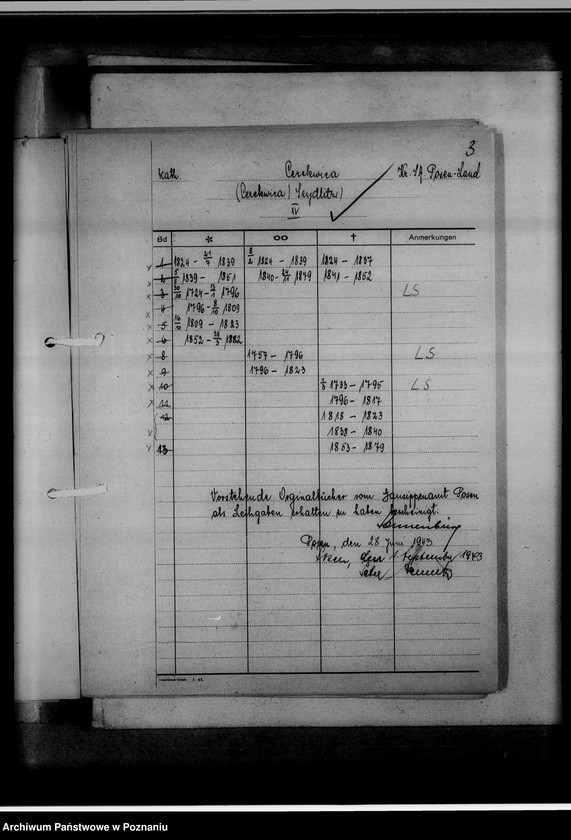 3
kath. Cerekwica Kr. Posen-Land
(Cerekwica / Seydlitz)
IV
Bd * ∞ † Anmerkungen
1 1824 - 21/7 1839 8/2 1824 - 1839 1824 - 1837
2 5/8 1839 - 1851 1840 - 24/11 1849 1841 - 1852
3 30/10 1724 - 13/1 1796 LS
4 1796 - 8/10 1809
5 14/10 1809 - 1823
6 1852 - 1882
8 1757 - 1796 LS
9 1796 - 1823
10 1733 - 1795 LS
11 1796 - 1817
12 1818 - 1823
1838 - 1840
13 1853 - 1879
Vorstehende Orginalbücher vom Gausippenamt Posen
als Leihgaben erhalten zu haben bescheinigt:
Posen, den 28 Juni 1943.
September 1943
Archiwum Państwowe w Poznaniu